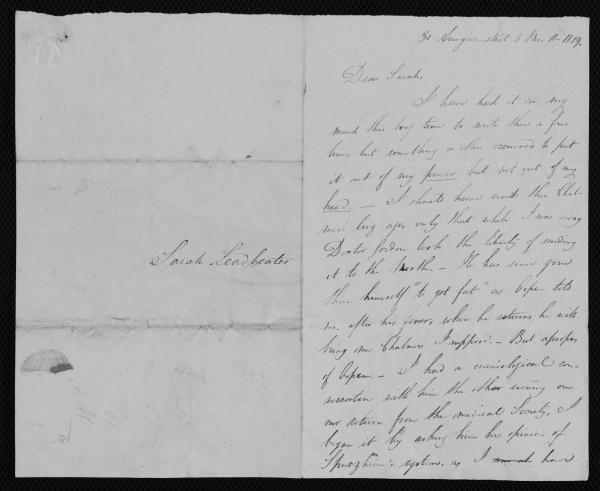 Sarah Leadbeater
31 Aungier-street 3 Mo. 11-1819.
Dear Sarah,
I have had it on my
mind this long time to write thee a few
lines but something or other occurred to put
it out of my power but not out of my
head. — I should have sent thee Chal-
mers long ago, only that while I was away
Doctor Gordon took the liberty of sending
it to the North. — He has since gone
there himself "to get fat" as told
me after his fever, when he returns he will
bring me Chalmers I suppose. — But apropos
of — I had a craniological con-
versation with him the other evening on
our return from the medical Society, I
began it by asking him his opinion of
Spurzheim's system, as I have